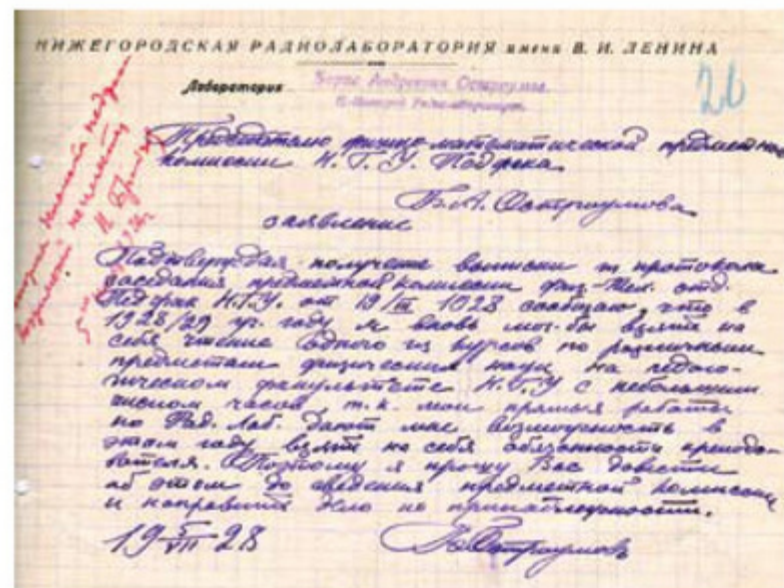 НИЖЕГОРОДСКАЯ РАДИОЛАБОРАТОРИЯ имени В. И. ЛЕНИНА
Лаборатория Борис Андреевич Остроумов.
26
Председателю физико-математической предметной
комиссии Н. Г. У. Педфака
Б. А. Остроумова
заявление
Подтверждая получение выписки из протокола
заседания предметной комиссии физ-мех. отд.
Педфак Н.Г.У. от 19/III 1928 сообщаю, что в
1928/29 уг. году я вновь мог бы взять на
себя чтение одного из курсов по различным
предметам физических наук на педаго-
гическом факультете Н.Г.У с небольшим
числом часов, т.к. мои прямые работы
по Рад. Лаб. дают мне возможность в
этом году взять на себя обязанности препода-
вателя. Поэтому я прошу Вас довести
об этом до сведения предметной комиссии
и направить дело по принадлежности.
19 5/VII 28 Б Остроумов